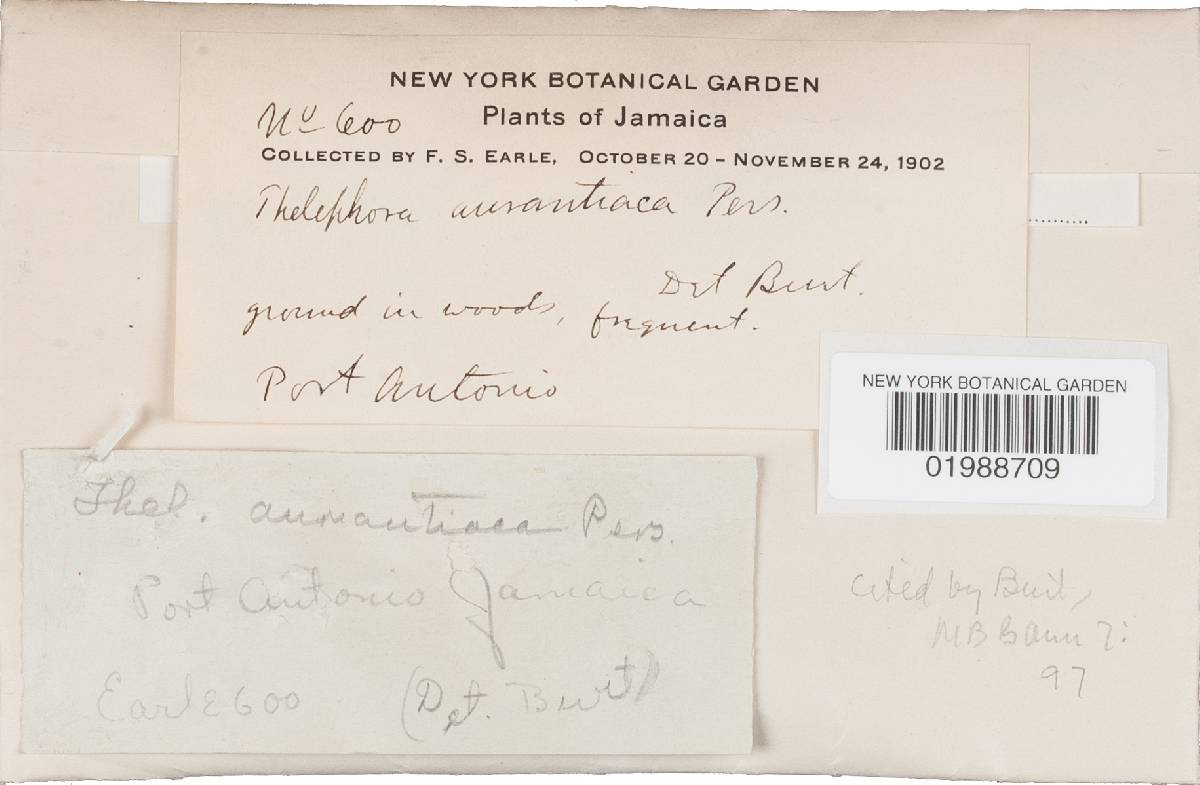 NEW YORK BOTANICAL GARDEN
No 600 Plants of Jamaica
COLLECTED BY F. S. EARLE, OCTOBER 20 - NOVEMBER 24, 1902
Thelephora aurantiaca Pers.
Det Burt.
ground in woods, frequent.
Port Antonio
NEW YORK BOTANICAL GARDEN
01988709
Thel. aurantiaca Pers.
Port Antonio Jamaica
Earle 600 (Det. Burt)
cited by Burt,
MB Gann 7:
97